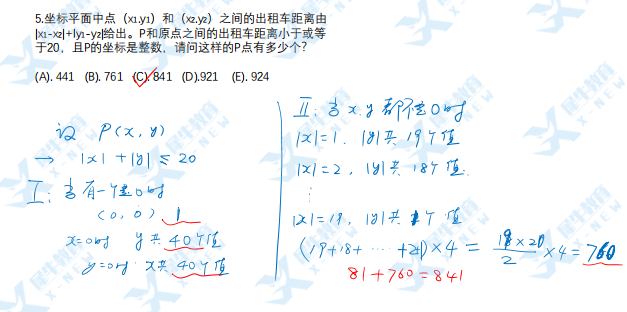 5.坐标平面中点（x₁.y₁）和（x₂.y₂）之间的出租车距离由
|x₁-x₂|+|y₁-y₂|给出。P和原点之间的出租车距离小于或等
于20，且P的坐标是整数，请问这样的P点有多少个?
(A). 441 (B). 761 (C). 841 (D).921 (E). 924
设 P(x, y)
→ |x| + |y| ≤ 20
I: 当有一个是0时
(0, 0) 1
x=0时 y共40个值
y=0时 x共40个值
II: 当x.y都不是0时
|x|=1, |y|共19个值
|x|=2, |y|共18个值.
⋮
|x|=19, |y|共1个值
(19+18+ ⋯ +1)×4 = 19×20/2 ×4 = 760
81+760=841
犀牛教育
X-NEW